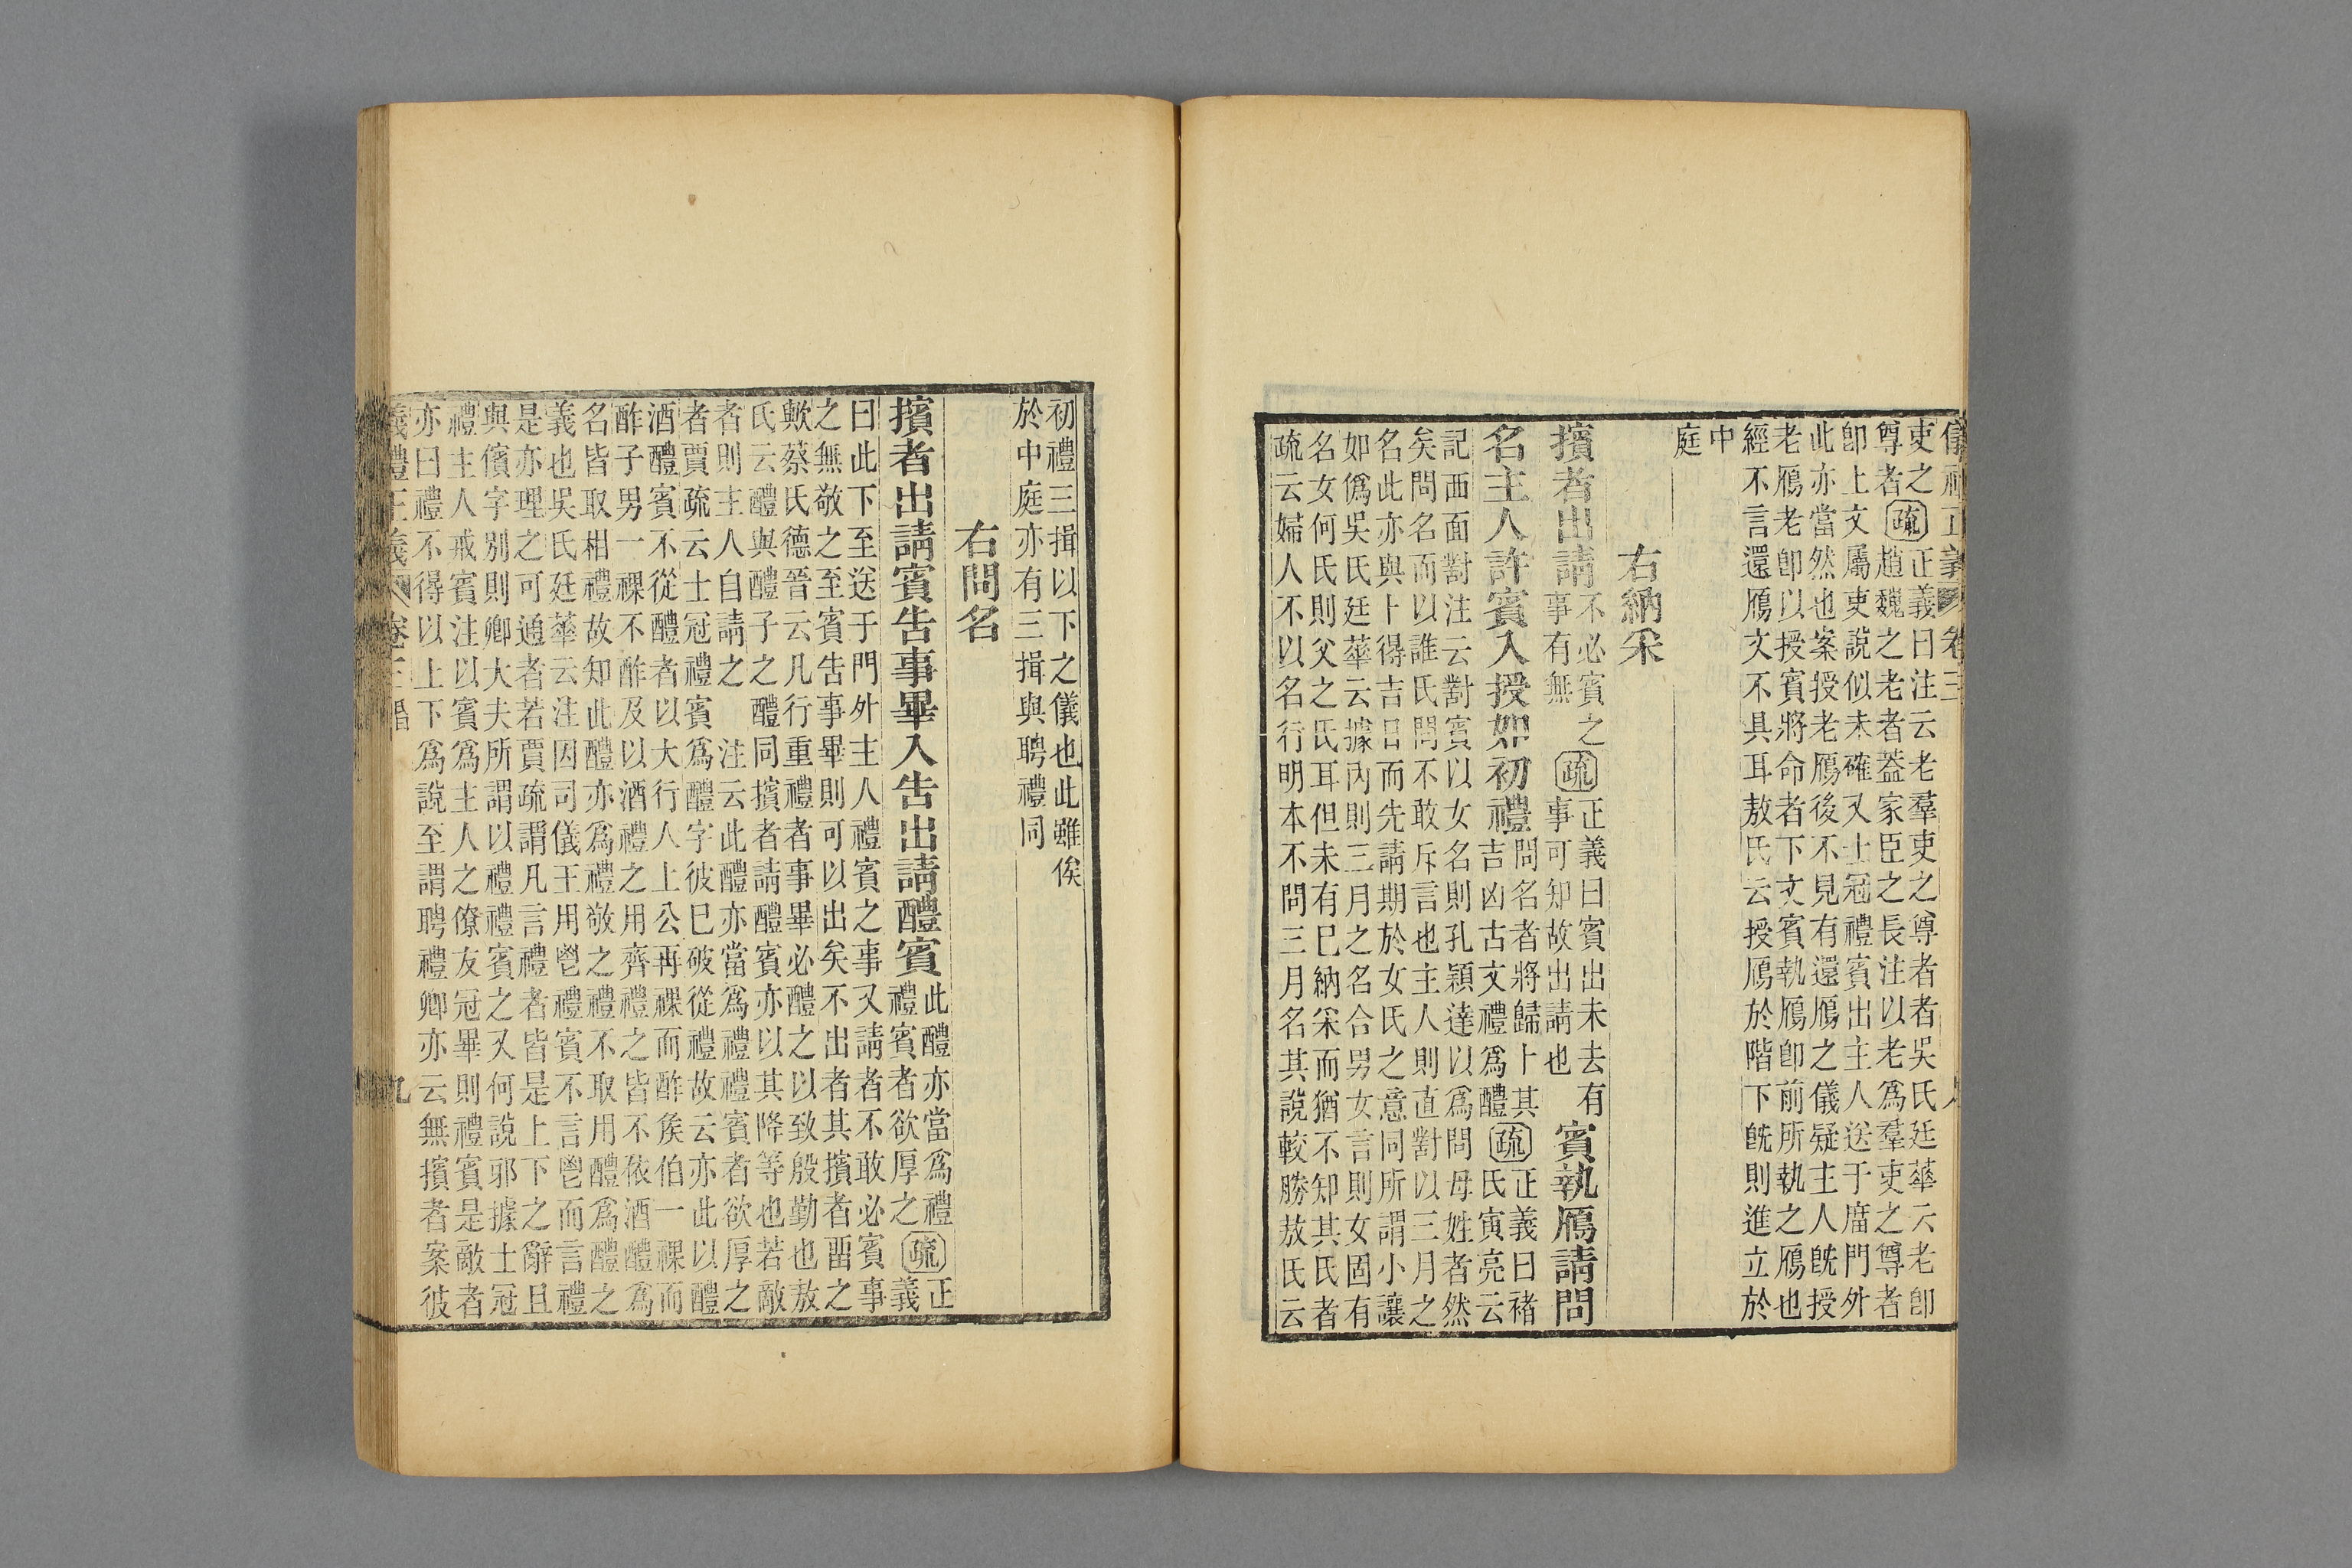 儀禮正義 卷三
吏之尊者疏正義曰注云老羣吏之尊者者吳氏廷華云老卽
尊者疏趙魏之老者蓋家臣之長注以老爲羣吏之尊者
卽上文屬吏說似未確又士冠禮賓出主人送于庿門外
此亦當然也案授老鴈後不見有還鴈之儀疑主人旣授
老鴈老卽以授賓將命者下文賓執鴈卽前所執之鴈也
經不言還鴈文不具耳敖氏云授鴈於階下旣則進立於
中
庭
右納采
擯者出請不必賓之事有無疏正義曰賓出未去有事可知故出請也賓執鴈請問
名主人許賓入授如初禮問名者將歸卜其吉凶古文禮爲醴疏正義曰褚氏寅亮云
記西面對注云對賓以女名則孔穎達以爲問母姓者然
矣問名而以誰氏問不敢斥言也主人則直對以三月之
名此亦與卜得吉日而先請期於女氏之意同所謂小讓
如僞吳氏廷華云據內則三月之名合男女言則女固有
名女何氏則父之氏耳但未有已納采而猶不知其氏者
疏云婦人不以名行明本不問三月名其說較勝敖氏云
初禮三揖以下之儀也此雖俟
於中庭亦有三揖與聘禮同
右問名
擯者出請賓告事畢入告出請醴賓此醴亦當爲禮禮賓者欲厚之疏正義
曰此下至送于門外主人禮賓之事又請者不敢必賓事
之無敬之至賓告事畢則可以出矣不出者其擯者畱之
歟蔡氏德晉云凡行重禮者事畢必醴之以致殷勤也敖
氏云醴與醴子之醴同擯者請醴賓亦以其降等也若敵
者則主人自請之 注云此醴亦當爲禮禮賓者欲厚之
者賈疏云士冠禮賓爲醴字彼已破從禮故云亦此以醴
酒醴賓不從醴者以大行人上公再祼而酢矦伯一祼而
酢子男一祼不酢及以酒禮之用齊禮之皆不依酒醴爲
名皆取相禮故知此醴亦爲禮敬之禮不取用醴爲醴之
義也吳氏廷華云注因司儀王用鬯禮賓不言鬯而言禮
是亦理之可通者若賈疏謂凡言禮者皆是上下之辭且
與儐字別則卿大夫所謂以禮禮賓之又何說邪據士冠
禮主人戒賓注以賓爲主人之僚友冠畢則禮賓是敵者
亦曰禮不得以上下爲說至謂聘禮卿亦云無擯者案彼
義禮正義 卷三昏 九